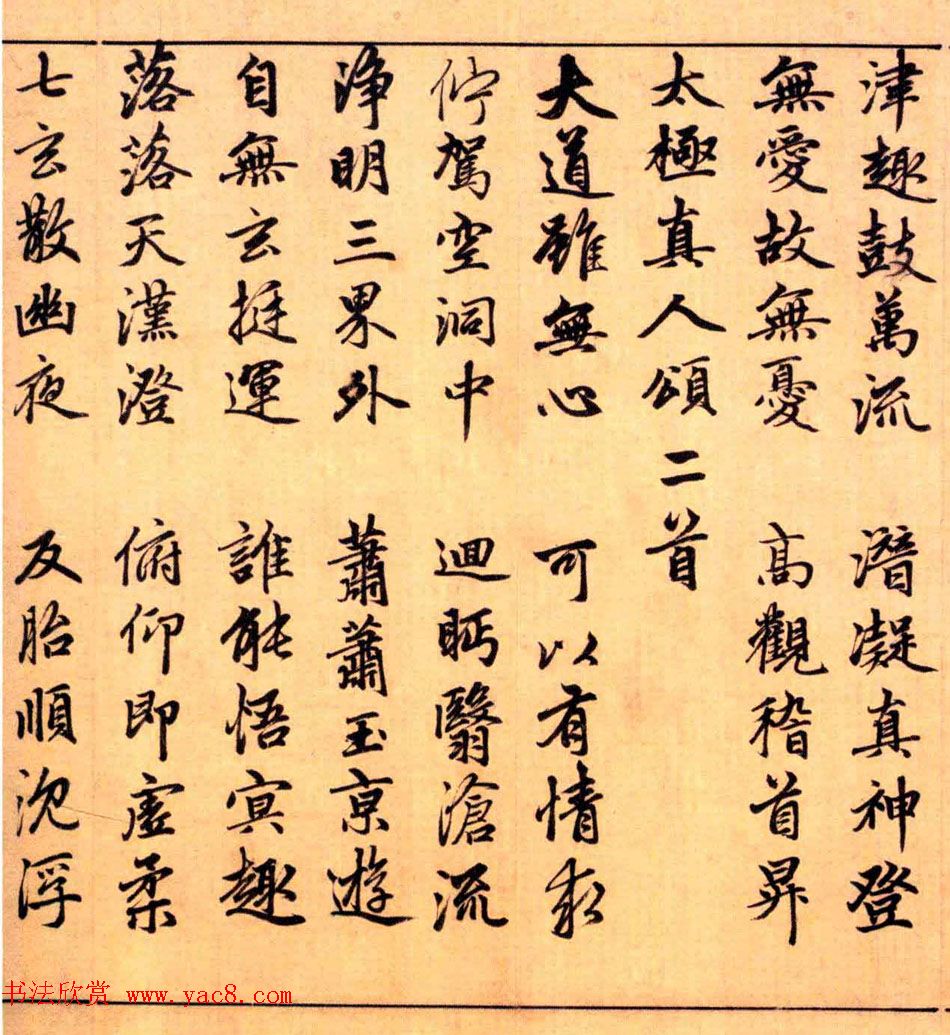 津趣鼓萬流　潛凝真神登
無愛故無憂　高觀稽首昇
太極真人頌二首
大道雖無心　可以有情求
佇駕空洞中　迴眄翳滄流
淨明三界外　蕭蕭玉京遊
自無玄挺運　誰能悟冥趣
落落天漢澄　俯仰即虛柔
七玄散幽夜　反胎順沈浮
书法欣赏 www.yac8.com